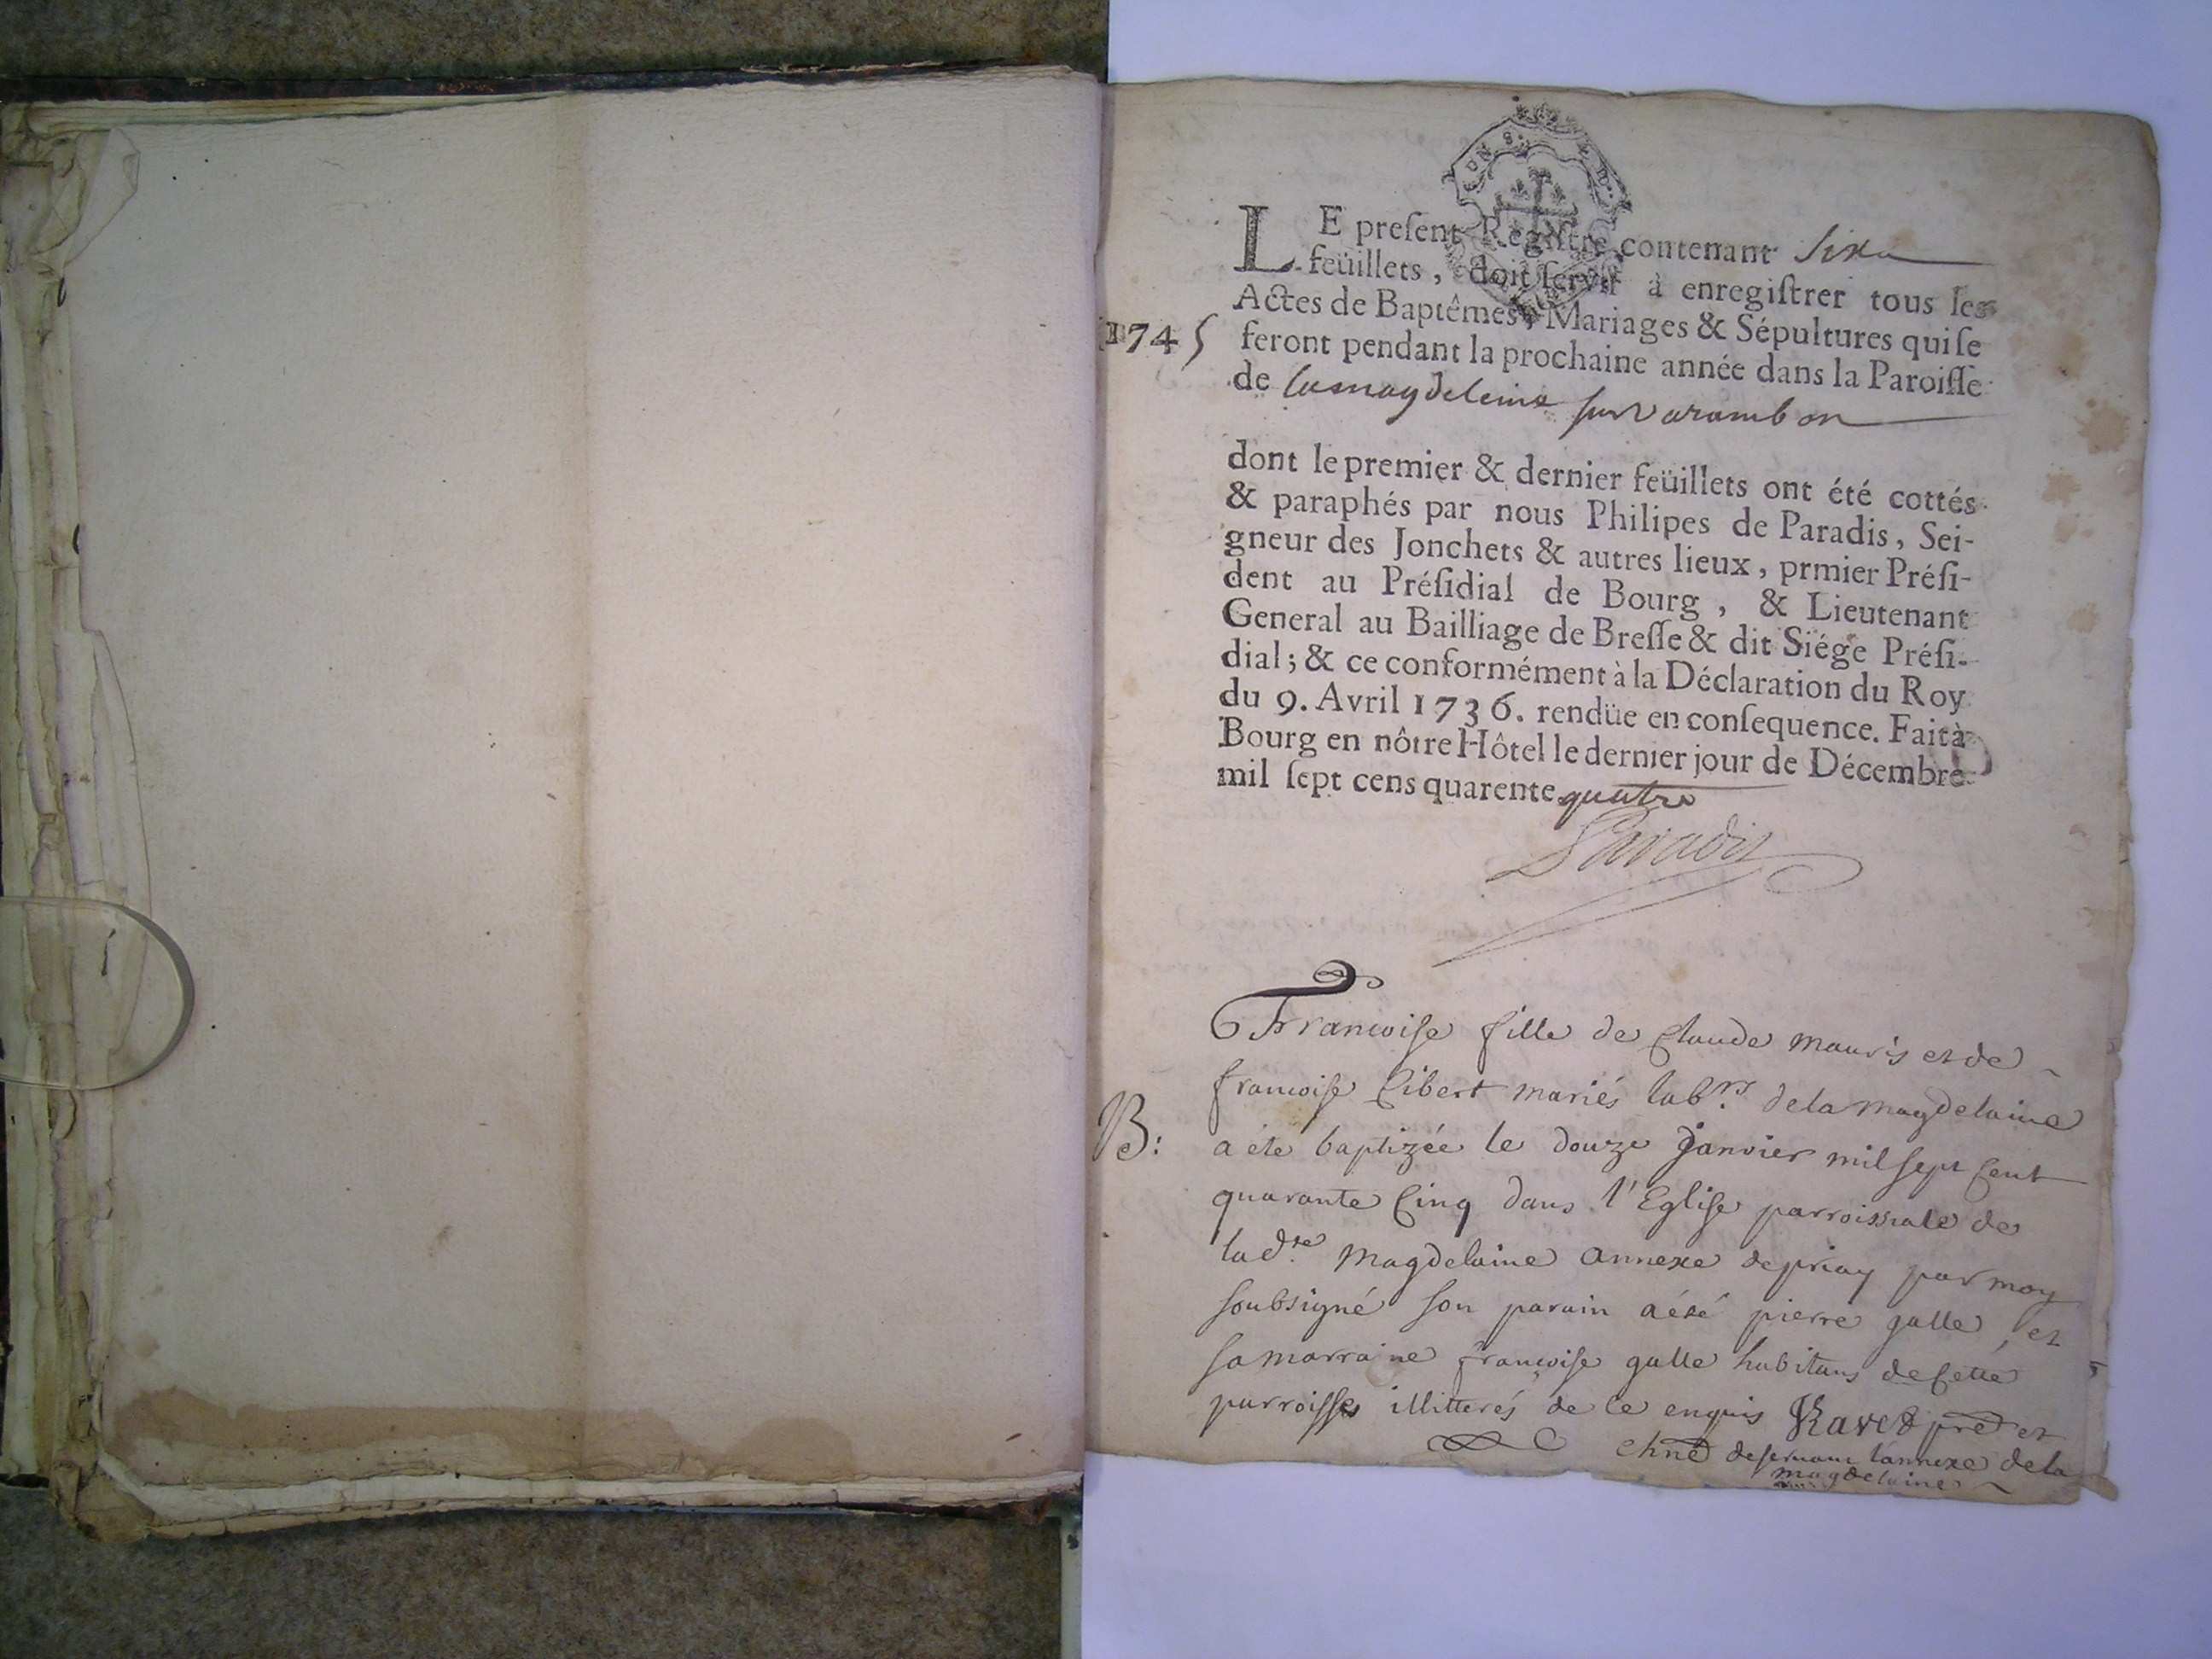 UN S:
LE preſent Regiſtre contenant Sixe
feüillets, doit ſervir à enregiſtrer tous les
Actes de Baptêmes, Mariages & Sépultures qui ſe
1745
feront pendant la prochaine année dans la Paroiſſe
de lamagdeleine sur varambon
dont le premier & dernier feüillets ont été cottés
& paraphés par nous Philipes de Paradis, Sei-
gneur des Jonchets & autres lieux, prmier Préſi-
dent au Préſidial de Bourg, & Lieutenant
General au Bailliage de Breſſe & dit Siége Préſi-
dial; & ce conformément à la Déclaration du Roy
du 9. Avril 1736. rendüe en conſequence. Fait à
Bourg en nôtre Hôtel le dernier jour de Décembre
mil ſept cens quarente quatre
Paradis
Francoise fille de Claude mauris et de
francoise Cibert mariés lab.rs dela magdelaine
B: a éte baptizée le douze Janvier mil sept Cent
quarante Cinq dans l'Eglise parroissiale de
lad.te magdelaine annexe de priay par moy
soubsigné son parain a été pierre galle, et
sa marraine francoise galle habitans de Cette
parroisse illitterés de ce enquis Ravet pre et
chne deservant l'annexe de la
magdelaine